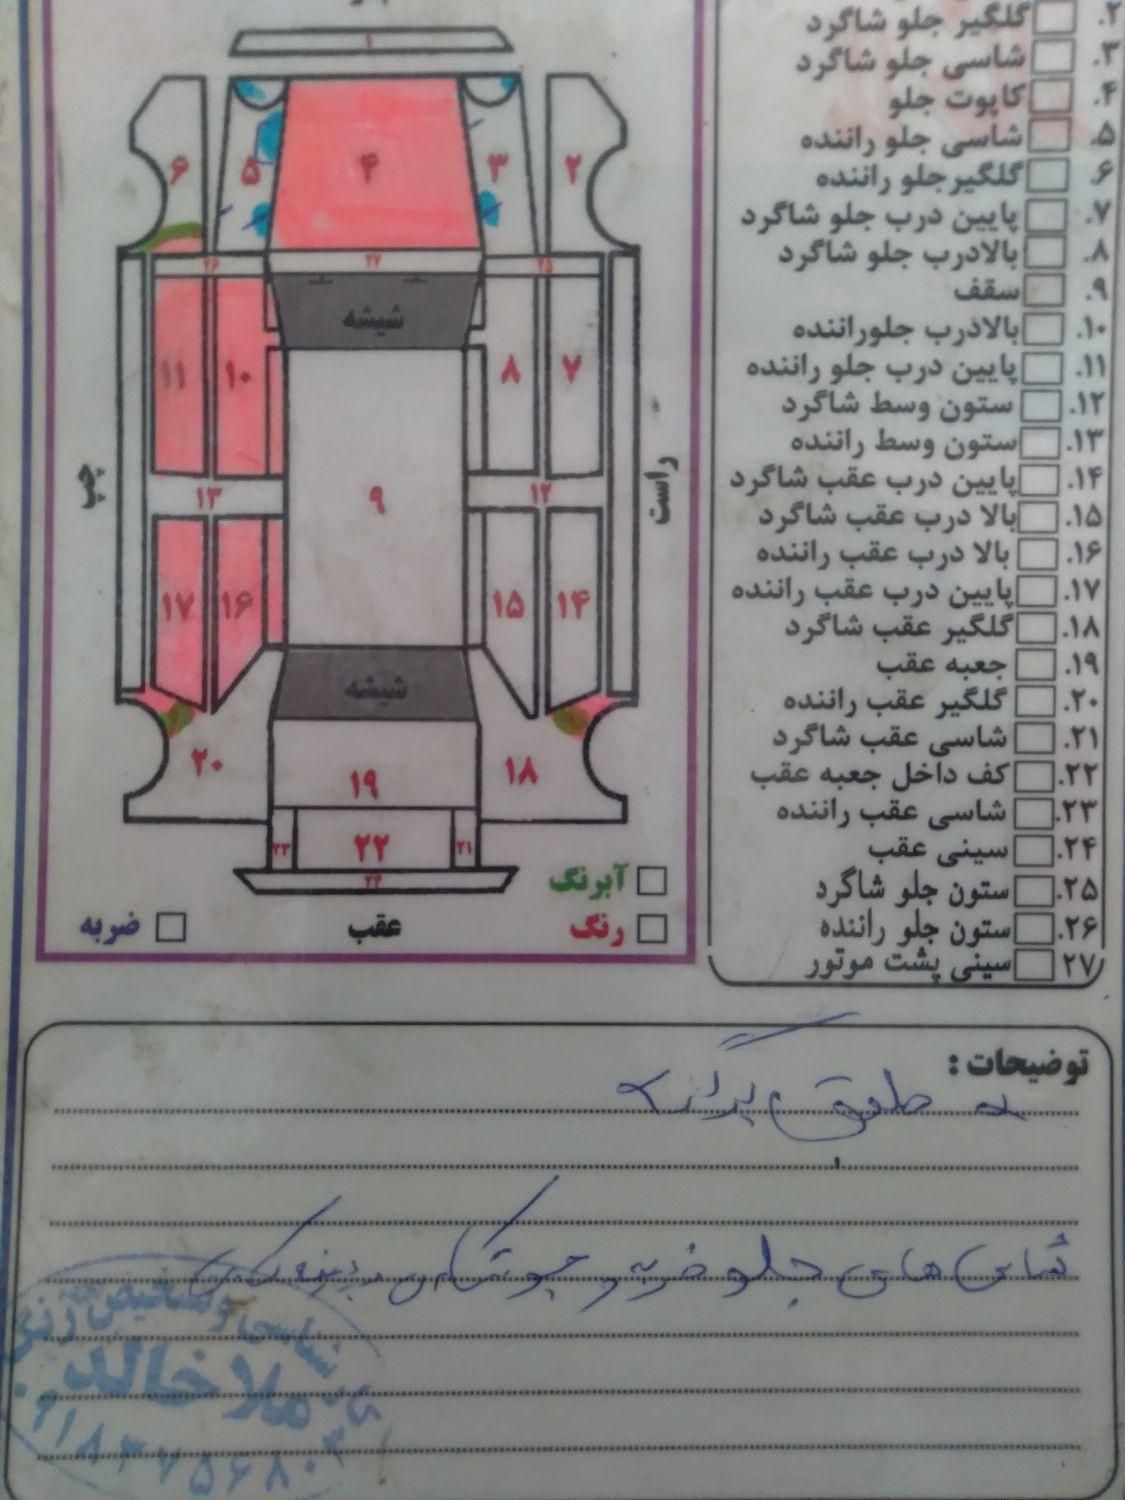 ۲. گلگیر جلو شاگرد
۳. شاسی جلو شاگرد
۴. کاپوت جلو
۵. شاسی جلو راننده
۶. گلگیرجلو راننده
۷. پایین درب جلو شاگرد
۸. بالادرب جلو شاگرد
۹. سقف
۱۰. بالادرب جلوراننده
۱۱. پایین درب جلو راننده
۱۲. ستون وسط شاگرد
۱۳. ستون وسط راننده
۱۴. پایین درب عقب شاگرد
۱۵. بالا درب عقب شاگرد
۱۶. بالا درب عقب راننده
۱۷. پایین درب عقب راننده
۱۸. گلگیر عقب شاگرد
۱۹. جعبه عقب
۲۰. گلگیر عقب راننده
۲۱. شاسی عقب شاگرد
۲۲. کف داخل جعبه عقب
۲۳. شاسی عقب راننده
۲۴. سینی عقب
۲۵. ستون جلو شاگرد
۲۶. ستون جلو راننده
۲۷. سینی پشت موتور
۱
۲ ۳ ۴ ۵ ۶
۲۵ ۲۷ ۲۶
شیشه
۷ ۸ ۱۰ ۱۱
راست
چپ
۹
۱۲ ۱۳
۱۴ ۱۵ ۱۶ ۱۷
شیشه
۱۸ ۱۹ ۲۰
۲۱ ۲۲ ۲۳
۲۴
آبرنگ
رنگ
عقب
ضربه
توضیحات :
شاسی های جلو ضربه و جوشکاری
ملا خالد